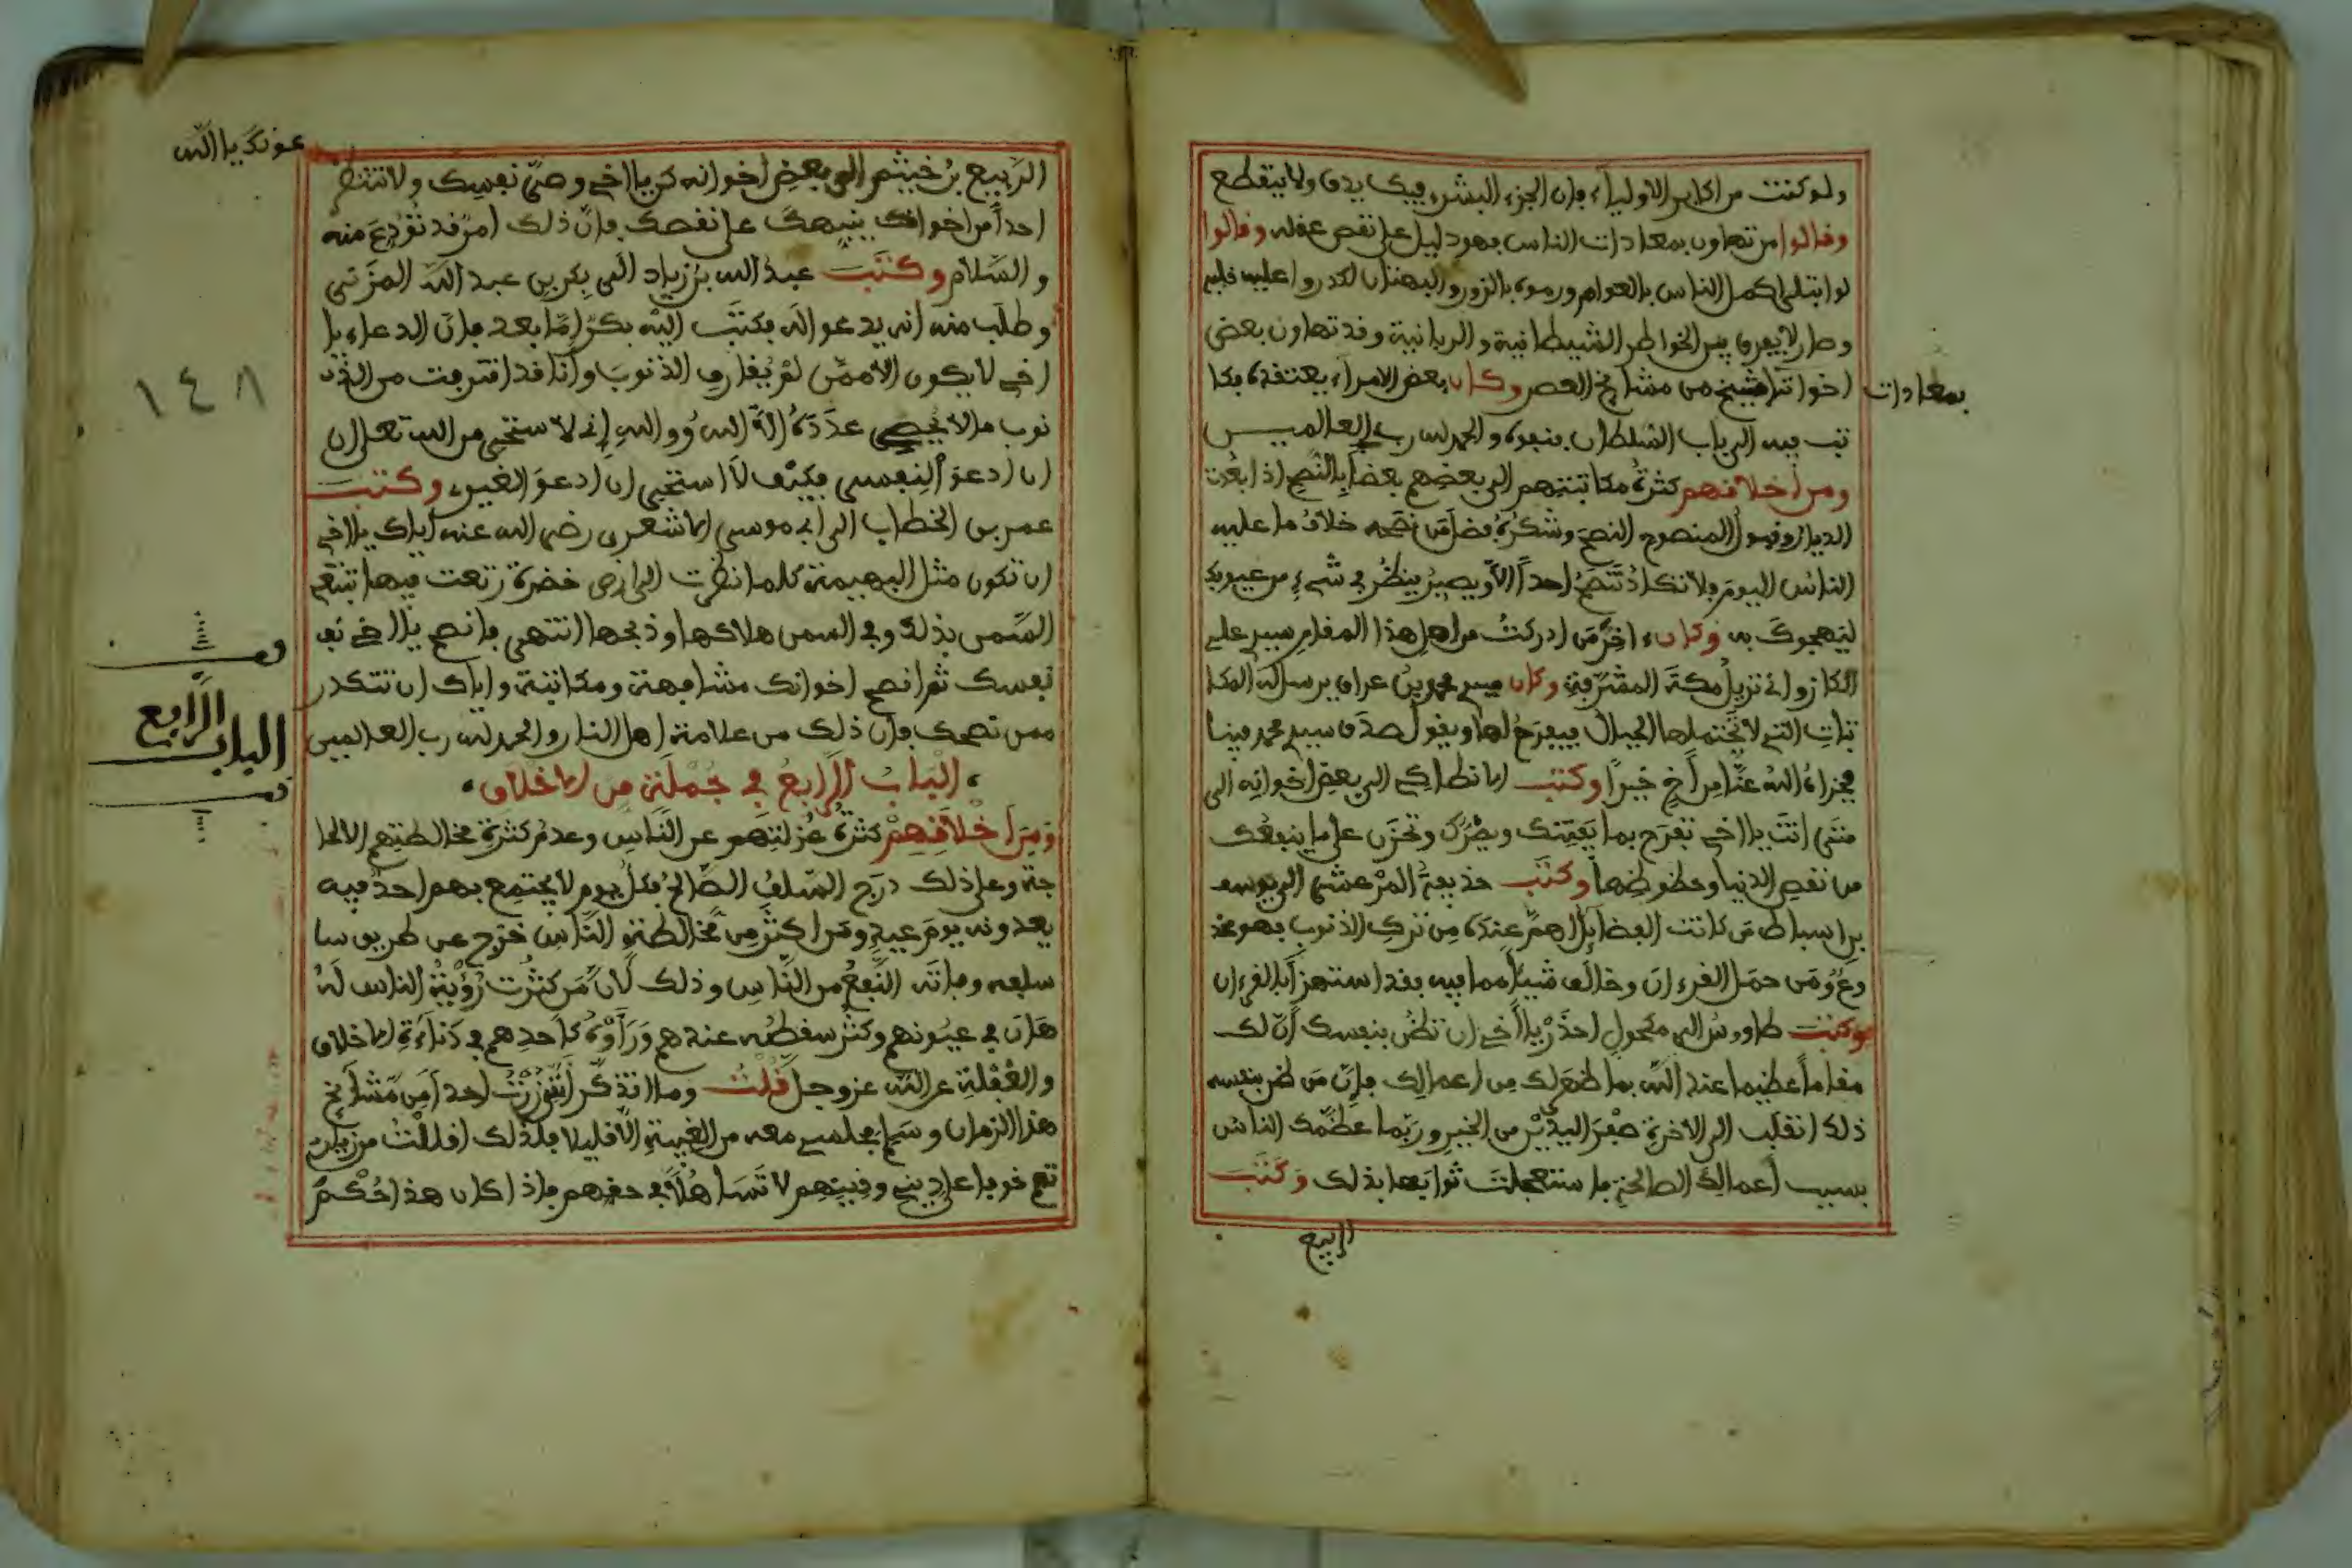 ولو كنت من اكابر الاولياء فإن الجزء البشري فيك يدق ولا ينقطع
وقالوا من تهاون بمعادات الناس فهو دليل على نقص عقله وقالوا
لو ابتلى اكمل الناس بالعوام ورموه بالزور والبهتان لكدروا عليه قلبه
وصار لا يعرف بين الخواطر الشيطانية والربانية وقد تهاون بعض
بمعادات
اخواننا شيخ من مشايخ العصر وكان بعض الامراء يعتقده فكا
تب فيه الى باب السلطان بنفيه والحمد لله رب العالميـن
ومن أخلاقهم كثرة مكاتبتهم الى بعضهم بعضا بالنصح اذا بعدت
الديار وقبول المنصوح النصح وشكره فضل من نصحه خلاف ما عليه
الناس اليوم فلا تكاد تنصح احدا الا ويصير ينظر في شيء من عيوبك
ليهجوك به وكان اخر من ادركت من اهل هذا المقام سيدي علي
الكازواني نزيل مكة المشرفة وكان سيدي محمد بن عراق يرسل له المكا
تبات التي لا تحتملها الجبال فيفرح لها ويقول صدق سيدي محمد فينا
فجزاه الله عنا من أخ خيرا وكتب الانطاكي الى بعض اخوانه الى
متى انت يا اخي تفرح بما يفتنك ويضرك وتحزن على ما ينفعك
من نقص الدنيا وحظوظها وكتب حذيفة المرعشي الى يوسف
بن اسباط من كانت الفضايل اهم عنده من ترك الذنوب فهو مخد
وع ومن حمل القرءان وخالف شيئا مما فيه فقد استهزأ بالقرءان
وكتب طاووس الى مكحول احذر يا أخي ان تظن بنفسك أن لك
مقاما عظيما عند الله بما ظهر لك من اعمالك فإن من ظن بنفسه
ذلك انقلب الى الاخرة صفر اليدين من الخير وربما عظمك الناس
بسبب أعمالك الصالحة فاستعجلت ثوابها بذلك وكتب
الربيع
عونك يا الله
الربيع بن خيثم الى بعض اخوانه كن يا اخي وصي نفسك ولا تنتظر
احدا من اخوانك ينبهك على نقصك فإن ذلك امر قد تودع منه
والسلام وكتب عبد الله بن زياد الى بكر بن عبد الله المزني
وطلب منه انه يدعو له فكتب اليه بكر اما بعد فإن الدعاء يا
اخي لا يكون الا ممن لم يقارف الذنوب وأنا قد اقترفت من الذ
١٤٨
نوب ما لا يحصي عدده الا الله ووالله إني لاستحي من الله تعلى ان
ان ادعو لنفسي فكيف لا استحيي ان ادعو لغيري وكتب
عمر بن الخطاب الى ابي موسى الاشعري رضي الله عنه اياك يا اخي
ان تكون مثل البهيمة كلما نظرت الى ارض خضرة رتعت فيها تبتغي
السمن بذلك وفي السمن هلاكها وذبحها انتهى فانصح يا اخي نف
نفسك ثم انصح اخوانك مشافهة ومكاتبة واياك ان تتكدر
ممن نصحك فإن ذلك من علامة اهل النار والحمد لله رب العالمين
قف
الباب الرابع
قف
الباب الرابع في جملة من الاخلاق
ومن أخلاقهم كثرة عزلتهم عن الناس وعدم كثرة مخالطتهم الا لحا
جة وعلى ذلك درج السلف الصالح فكل يوم لا يجتمع بهم احد فيه
يعدونه يوم عيد ومن اكثر من مخالطة الناس خرج عن طريق سا
سلفه وفاته النفع من الناس وذلك لأن من كثرت رؤية الناس له
هان في عيونهم وكثر سقطه عندهم ورأوه كأحدهم في دناءة الاخلاق
والغفلة عن الله عز وجل قلت وما اتذكر أنني زرت احدا من مشايخ
هذا الزمان وسلم مجلسي معه من الغيبة الا قليلا فلذلك اقللت من زيارت
تهم خوفا على ديني ودينهم لا تساهلا في حقهم فاذا كان هذا حكم